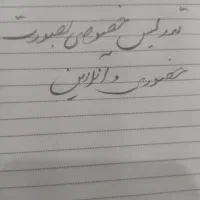 تدریس خصوصی بصورت
حضوری و آنلاین